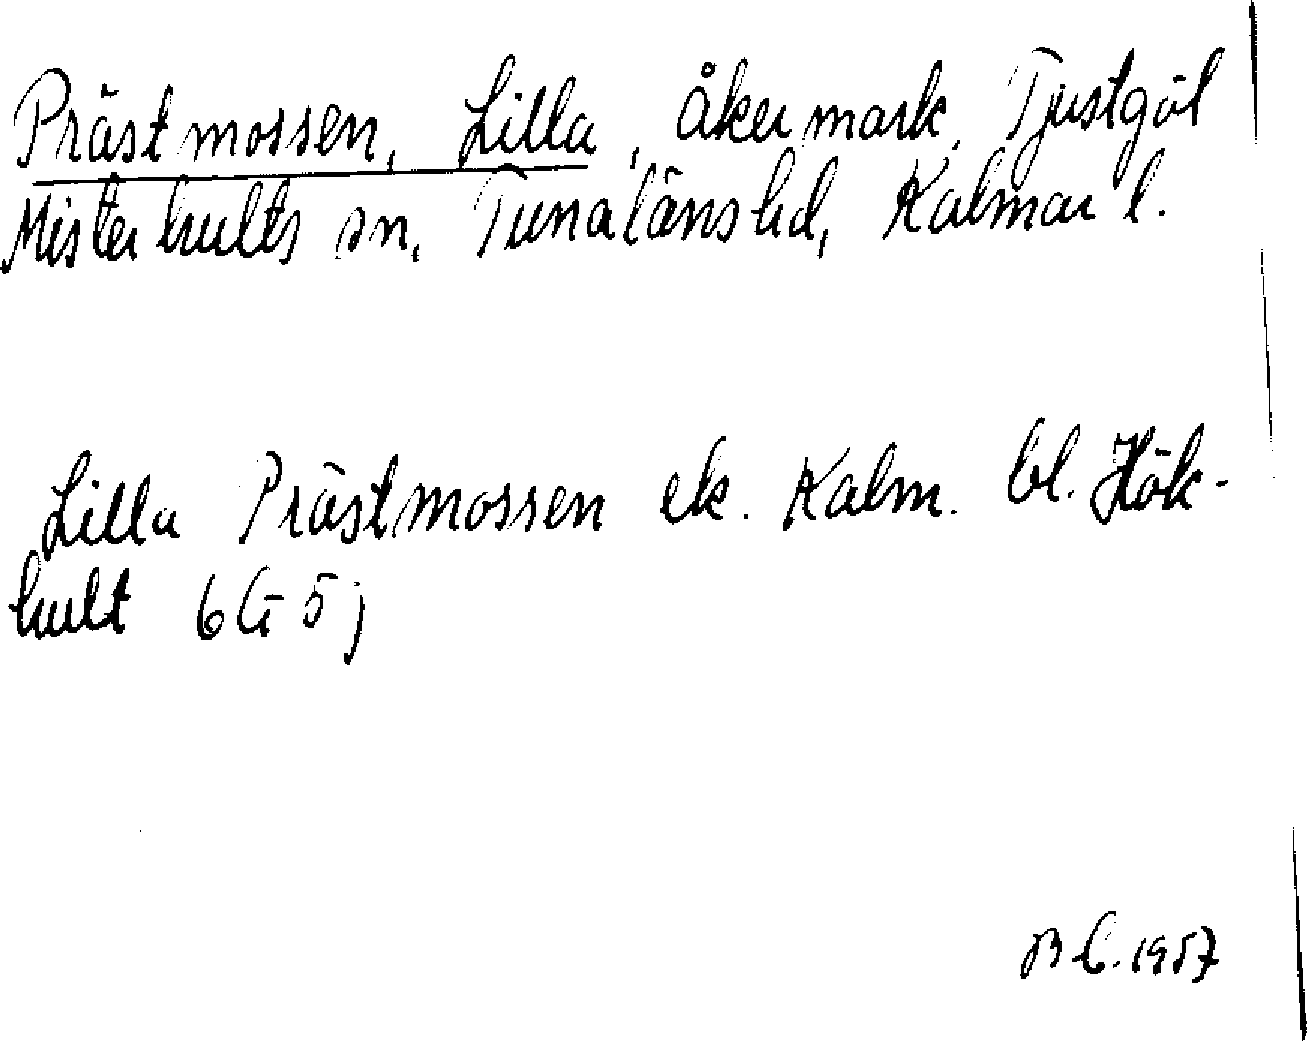 Prästmossen, Lilla, åkermark, Tjustgöl
Misterhults sn, Tunaläns hd, Kalmar l.
Lilla Prästmossen ek. Kalm. bl. Hök-
hult 6 G 5 j
B C. 1957